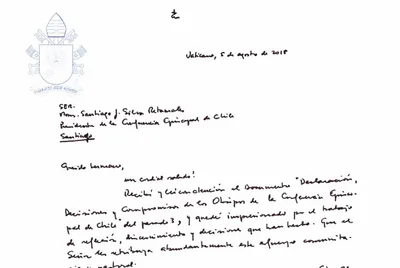 Vaticano, 5 de agosto de 2018
SER.
Mons. Santiago J. Silva Retamales
Presidente de la Conferencia Episcopal de Chile
Santiago
Querido hermano,
un cordial saludo!
Recibí y leí con atención el Documento "Declaración,
Decisiones y Compromisos de los Obispos de la Conferencia Episco-
pal de Chile" del pasado 3, y quedé impresionado por el trabajo
de reflexión, discernimiento y decisiones que han hecho. Que el
Señor les retribuya abundantemente este esfuerzo comunita-
pastoral.